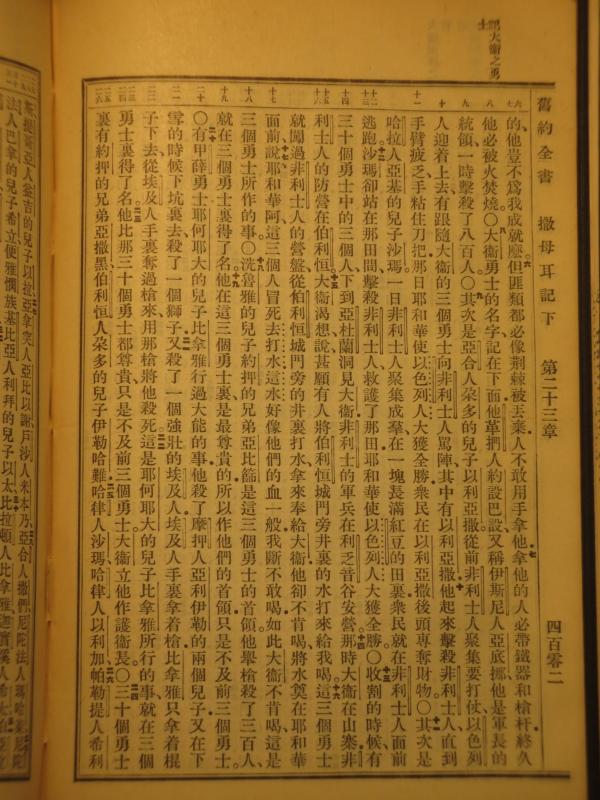 舊約全書 撒母耳記下 第二十三章 四百零二
大衞之勇士
的他豈不爲我成就麽但匪類都必像荊棘被丟棄人不敢用手拿他拿他的人必帶鐵器和槍杆終久
他必被火焚燒○大衞勇士的名字記在下面他革捫人約設巴設又稱伊斯尼人亞底挪他是軍長的
統領一時擊殺了八百人○其次是亞合人朶多的兒子以利亞撒從前非利士人聚集要打仗以色列
人迎着上去有跟隨大衞的三個勇士向非利士人罵陣其中有以利亞撒他起來擊殺非利士人直到
手臂疲乏手粘住刀把那日耶和華使以色列人大獲全勝衆民在以利亞撒後頭專奪財物○其次是
哈拉人亞基的兒子沙瑪一日非利士人聚集成羣在一塊長滿紅豆的田裏衆民就在非利士人面前
逃跑沙瑪卻站在那田間擊殺非利士人救護了那田耶和華使以色列人大獲全勝○收割的時候有
三十個勇士中的三個人下到亞杜蘭洞見大衞非利士的軍兵在利乏音谷安營那時大衞在山寨非
利士人的防營在伯利恒大衞渴想說甚願有人將伯利恒城門旁井裏的水打來給我喝這三個勇士
就闖過非利士人的營盤從伯利恒城門旁的井裏打水拿來奉給大衞他卻不肯喝將水奠在耶和華
面前說耶和華阿這三個人冒死去打水這水好像他們的血一般我斷不敢喝如此大衞不肯喝這是
三個勇士所作的事○洗魯雅的兒子約押的兄弟亞比篩是這三個勇士的首領他舉槍殺了三百人
就在三個勇士裏得了名他在這三個勇士裏是最尊貴的所以作他們的首領只是不及前三個勇士
○有甲薛勇士耶何耶大的兒子比拿雅行過大能的事他殺了摩押人亞利伊勒的兩個兒子又在下
雪的時候下坑裏去殺了一個獅子又殺了一個強壯的埃及人埃及人手裏拿着槍比拿雅只拿着棍
子下去從埃及人手裏奪過槍來用那槍將他殺死這是耶何耶大的兒子比拿雅所行的事就在三個
勇士裏得了名他比那三十個勇士都尊貴只是不及前三個勇士大衞立他作護衞長○三十個勇士
裏有約押的兄弟亞撒黑伯利恒人朶多的兒子伊勒哈難哈律人沙瑪哈律人以利加帕勒提人希利
斯提哥亞人益吉的兒子以拉亞拿突人亞比以謝戶沙人米本乃亞合人撒們尼陀法人瑪哈萊尼陀
法人巴拿的兒子希立便雅憫族基比亞人利拜的兒子以太比拉頓人比拿雅迦實溪人希太